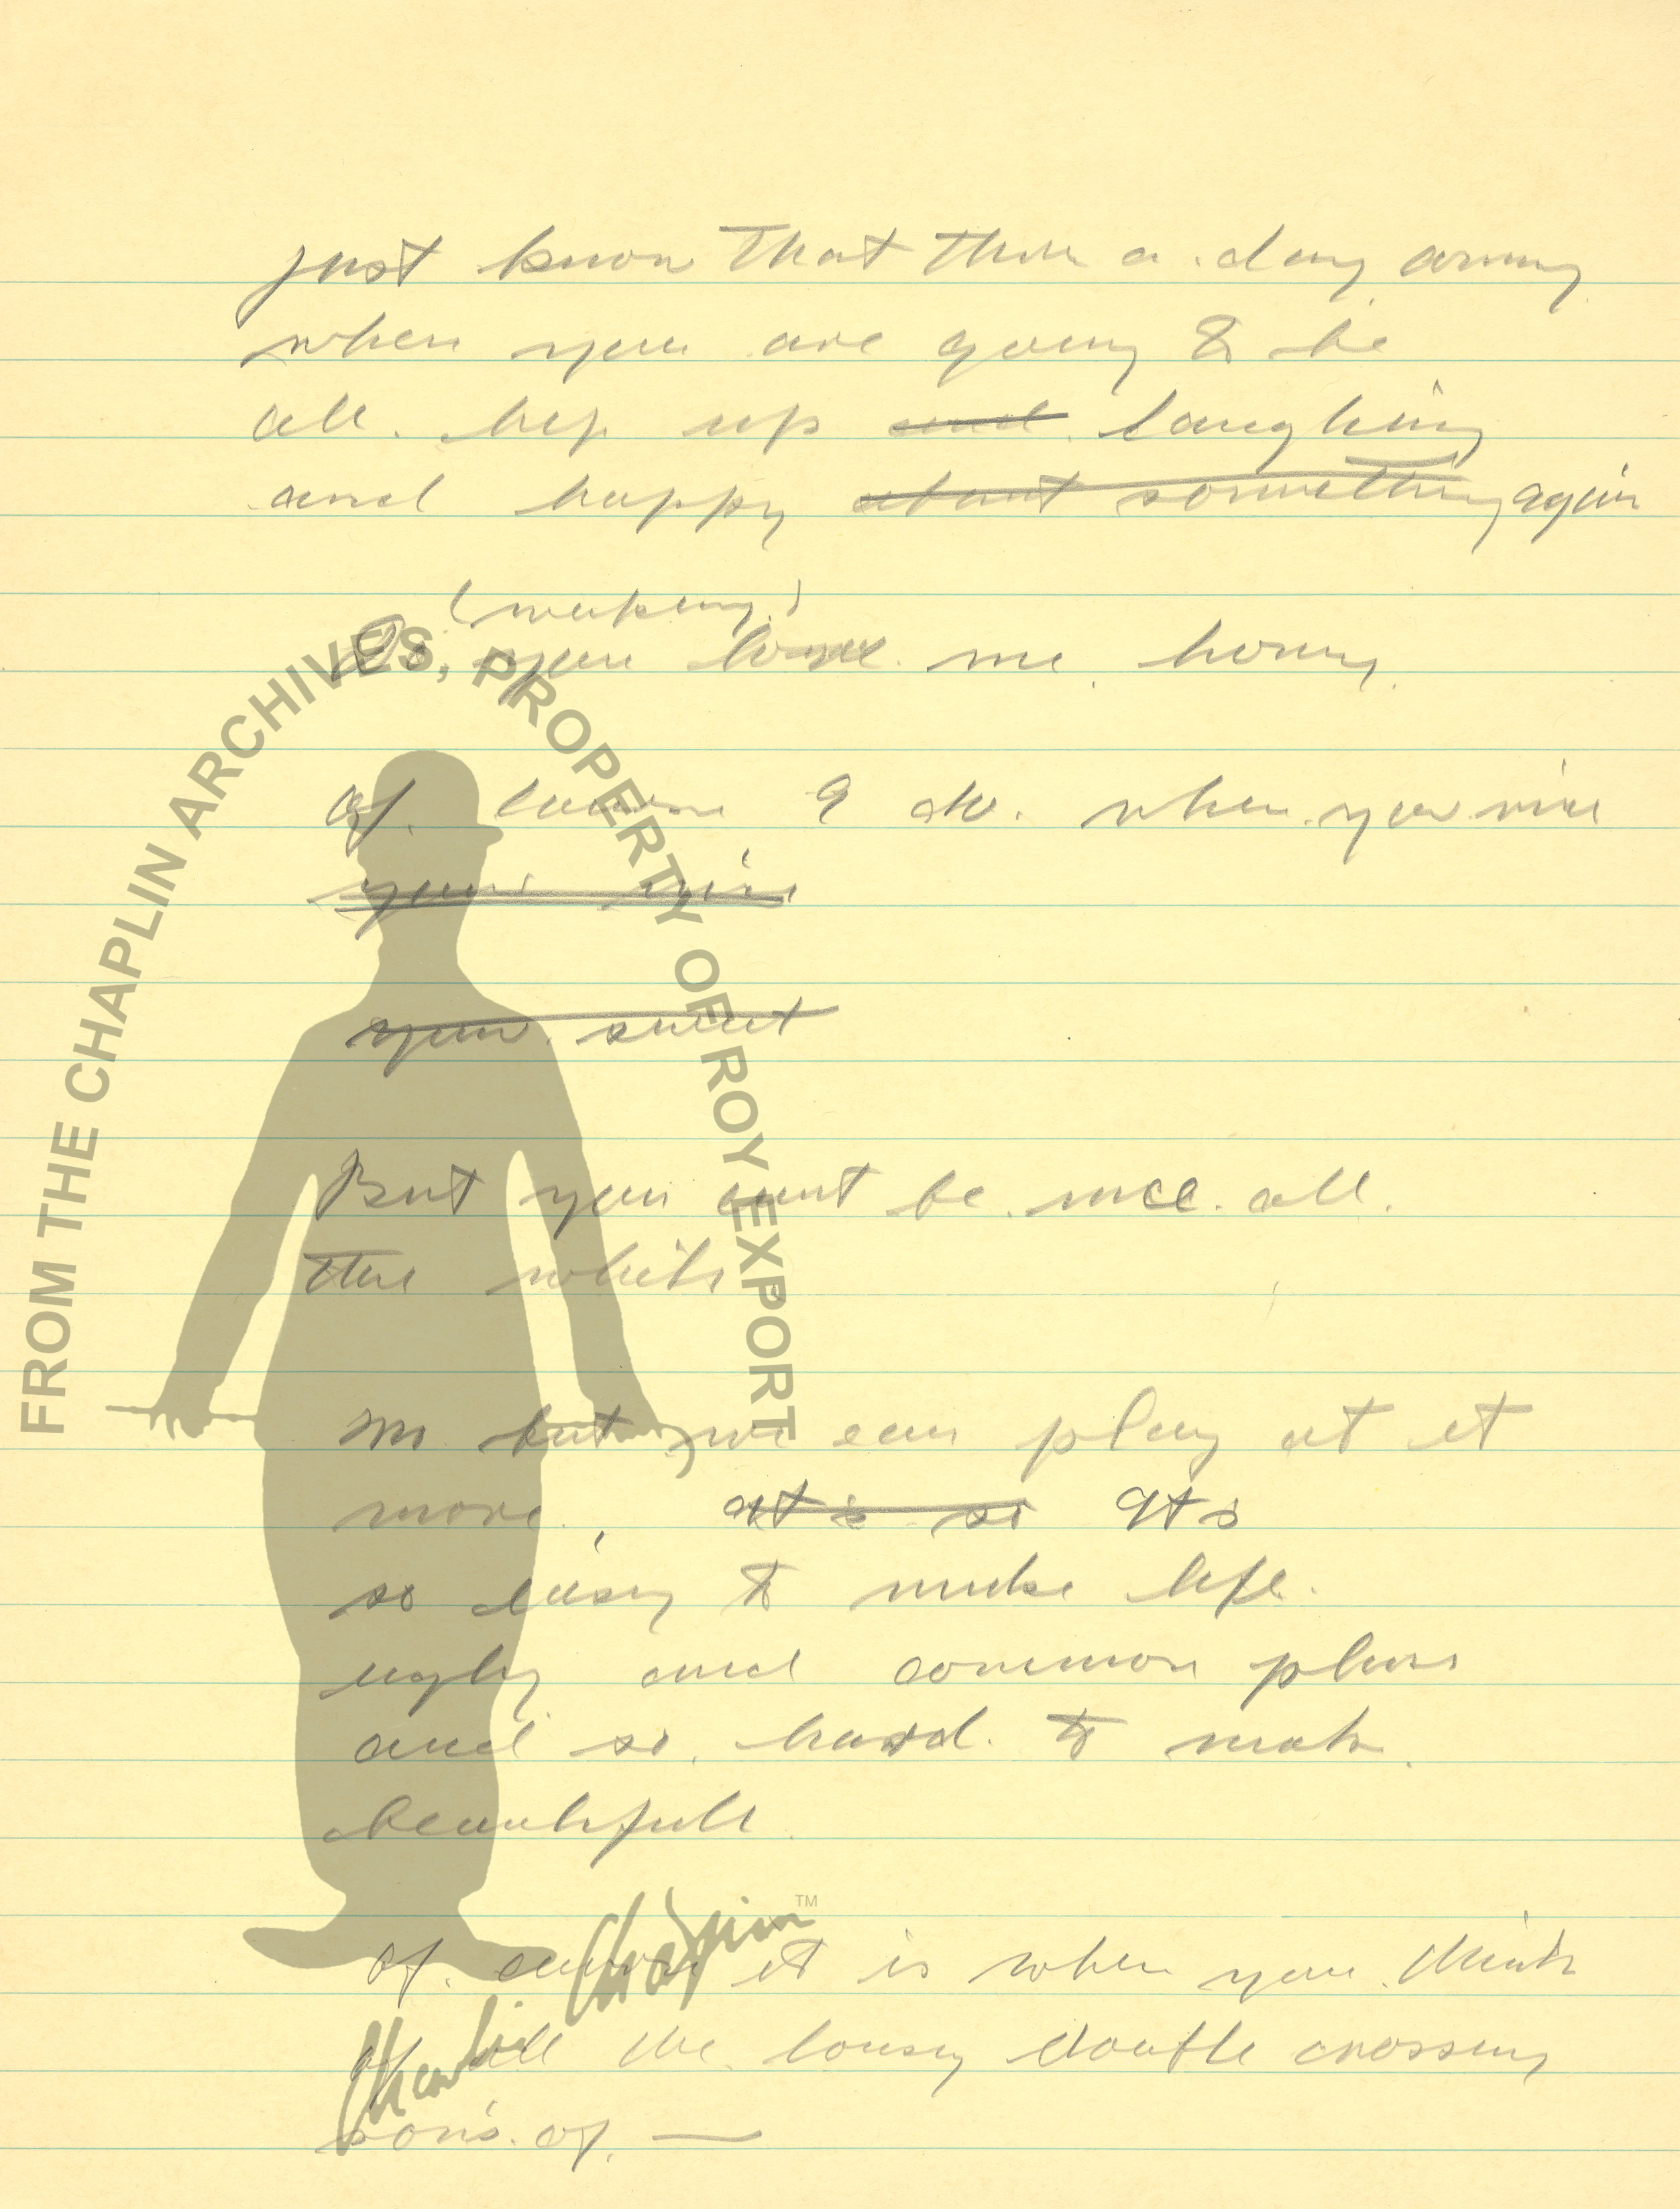 just know that there a day coming
when you are going to be
all hep up and laughing
and happy about something again
(weeping)
Do you love me honey
Of course I do. when you nice
your nice
your sweet
But you cant be nice all.
the while
No but, we can play at it
more, It's so It's
so easy to make life.
ugly and common place
and so hard. to make.
beautifull
of. course it is when you think
of all the lousy double crossing
son's. of. —
FROM THE CHAPLIN ARCHIVES, PROPERTY OF ROY EXPORT
Charlie Chaplin™